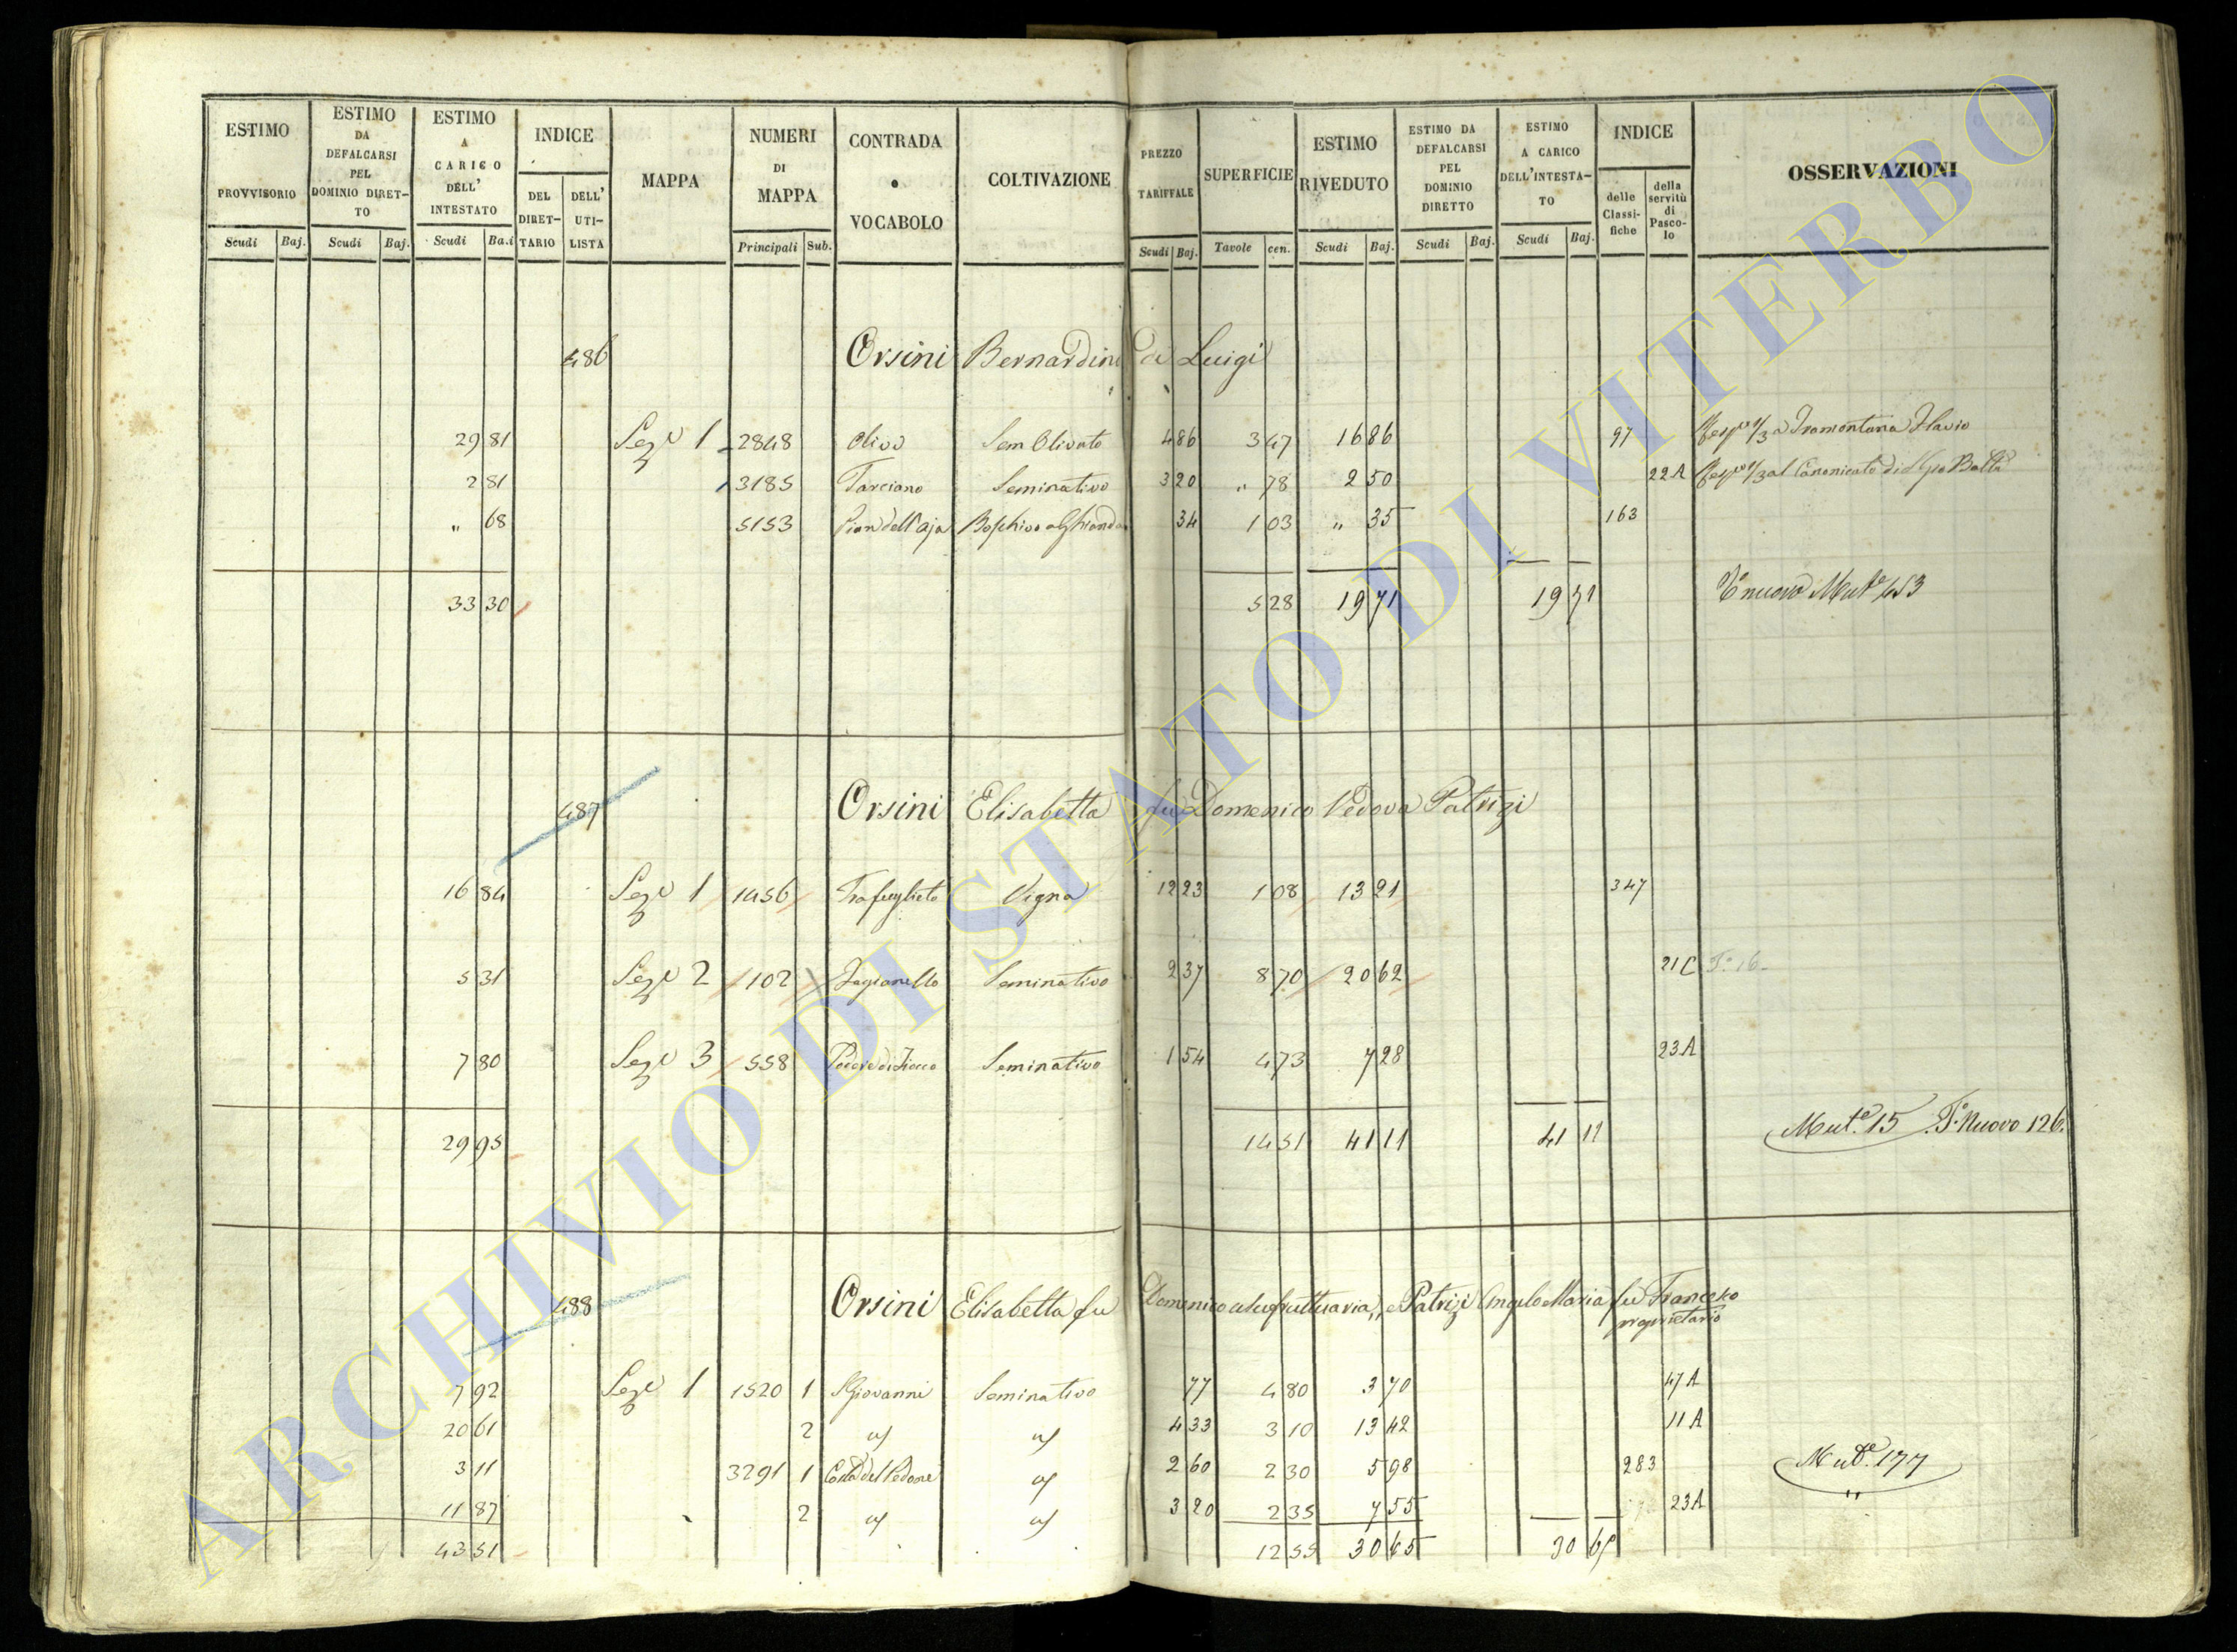 ESTIMO PROVVISORIO
ESTIMO DA DEFALCARSI PEL DOMINIO DIRETTO
ESTIMO A CARICO DELL' INTESTATO
INDICE
DEL DIRETTARIO
DELL' UTILISTA
MAPPA
NUMERI DI MAPPA
CONTRADA o VOCABOLO
COLTIVAZIONE
PREZZO TARIFFALE
SUPERFICIE
ESTIMO RIVEDUTO
ESTIMO DA DEFALCARSI PEL DOMINIO DIRETTO
ESTIMO A CARICO DELL'INTESTATO
INDICE
delle Classifiche
della servitù di Pascolo
OSSERVAZIONI
Scudi Baj. Scudi Baj. Scudi Ba.i Principali Sub. Scudi Baj. Tavole cen. Scudi Baj. Scudi Baj. Scudi Baj.
486 Orsini Bernardino di Luigi
29 81 Sez.e 1 2848 Olivo Sem Olivato 4 86 3 47 16 86 97 1/3 a Tramontana Flavio
2 81 3185 Tarciano Seminativo 3 20 " 78 2 50 22 A 1/3 al Canonicato di S Gio Batta
" 68 5153 Pian dell'aja Boschivo a Ghianda 34 1 03 " 35 163
33 30 5 28 19 71 19 71 nuovo Mut.e 453
487 Orsini Elisabetta fu Domenico Vedova Patrizi
16 84 Sez.e 1 1456 Trafuglieto Vigna 12 23 1 08 13 21 347
5 31 Sez.e 2 102 Seminativo 2 37 8 70 20 62 21 C F.o 16
7 80 Sez.e 3 558 Seminativo 1 54 4 73 7 28 23 A
29 95 14 51 41 11 41 11 Mut.e 15 F.o Nuovo 126.
488 Orsini Elisabetta fu Domenico usufruttuaria, e Patrizi Angelo Maria fu Francesco
proprietario
7 92 Sez.e 1 1520 1 S Giovanni Seminativo 77 4 80 3 70 47 A
20 61 2 4 33 3 10 13 42 11 A
3 11 3291 1 2 60 2 30 5 98 283 Mut.e 177
11 87 2 3 20 2 35 7 55 23 A "
43 51 12 55 30 65 30 65
ARCHIVIO DI STATO DI VITERBO